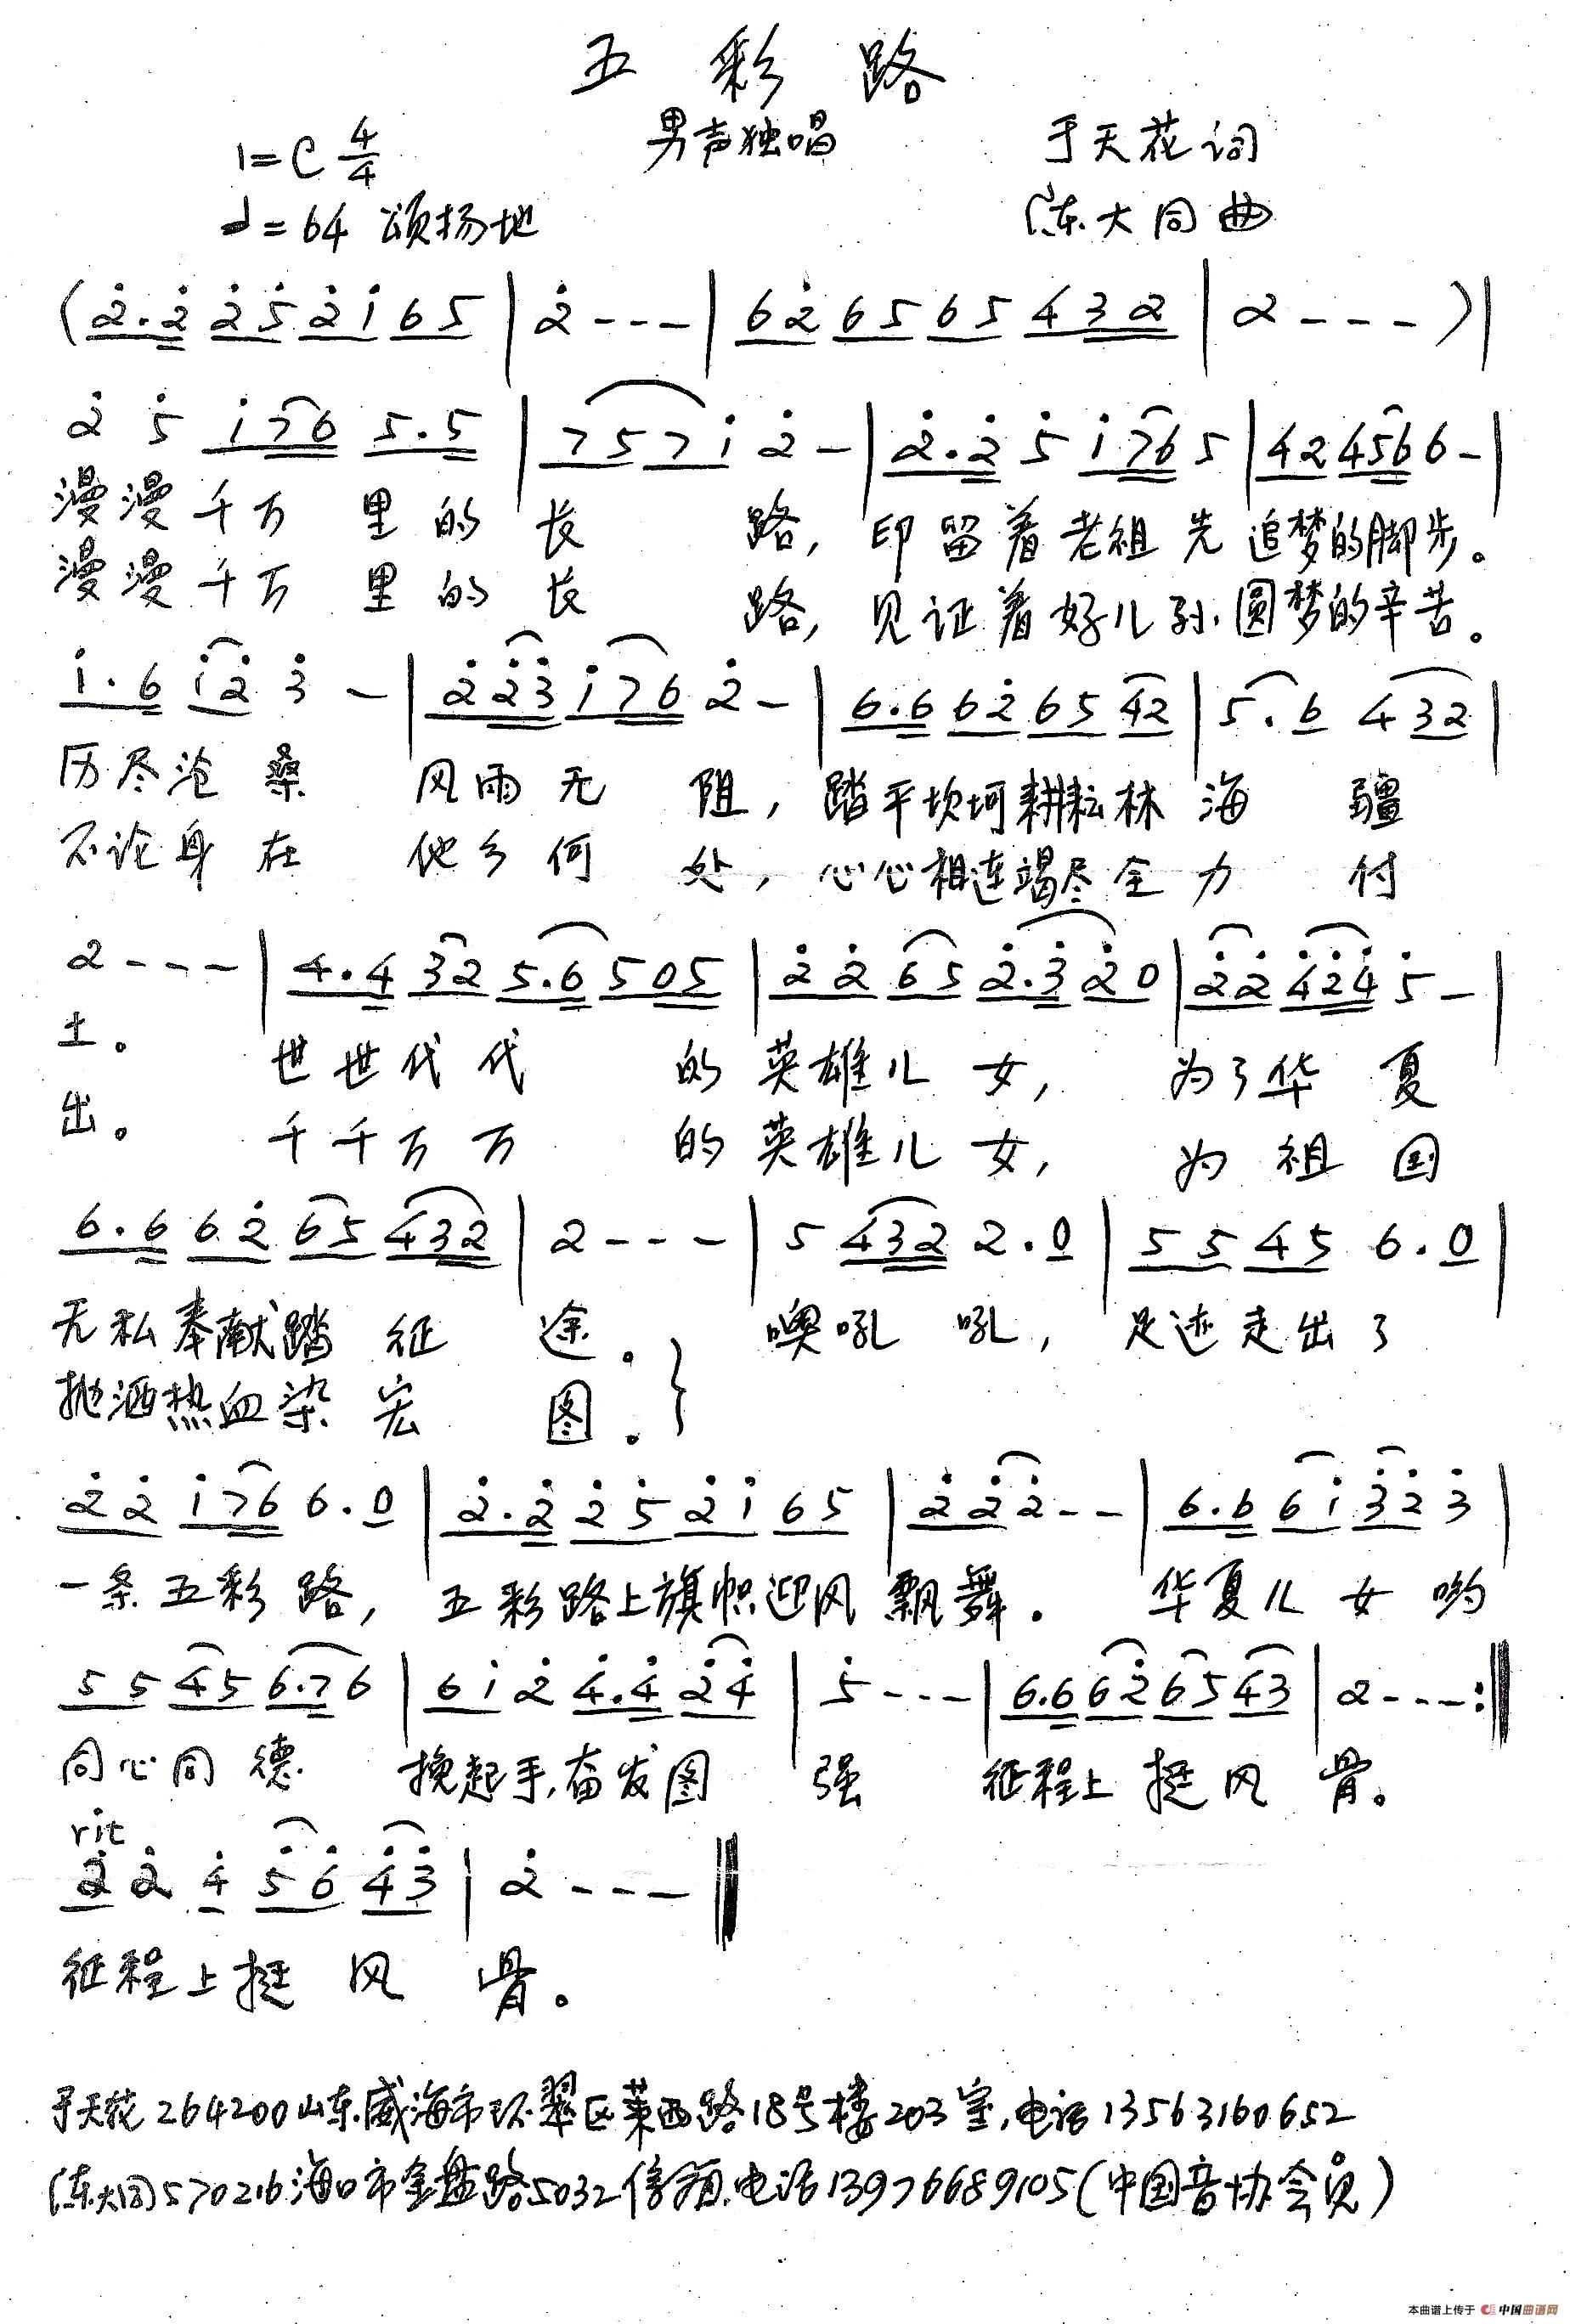 五彩路
男声独唱
1=C 4/4
于天花词
♩=64 颂扬地
陈大同曲
(2̇.2̇ 2̇5̇ 2̇1̇ 65 | 2̇--- | 62̇ 65 65 432 | 2---)|
2̇ 5̇ 1̇76 5.5 | 7571̇ 2̇- | 2̇.2̇ 5̇ 1̇76 5 | 42 456 6- |
漫漫千万里的长路,印留着老祖先追梦的脚步。
漫漫千万里的长路,见证着好儿孙圆梦的辛苦。
1̇.6 1̇2̇ 3̇- | 2̇2̇3̇ 1̇76 2̇- | 6.6 62̇ 65 42 | 5.6 432 |
历尽沧桑风雨无阻,踏平坎坷耕耘林海疆
不论身在他乡何处,心心相连竭尽全力付
2--- | 4.4 32 5.6 505 | 2̇2̇ 65 2̇.3̇ 2̇0 | 2̇2̇ 4̇2̇4̇ 5̇- |
土。世世代代的英雄儿女,为了华夏
出。千千万万的英雄儿女,为祖国
6.6 62̇ 65 432 | 2--- | 5 432 2.0 | 55 45 6.0 |
无私奉献踏征途。噢吼吼,足迹走出了
抛洒热血染宏图。
2̇2̇ 1̇76 6.0 | 2̇.2̇ 2̇5̇ 2̇1̇ 65 | 2̇2̇2̇-- | 6.6 61̇ 3̇2̇ 3̇ |
一条五彩路,五彩路上旗帜迎风飘舞。华夏儿女哟
55 45 6.76 | 61̇ 2̇ 4̇.4̇ 2̇4̇ | 5̇--- | 6.6 62̇ 65 43 | 2---:‖
同心同德挽起手,奋发图强征程上挺风骨。
rit
2̇ 2̇ 4̇ 5̇6̇ 4̇3̇ | 2̇---‖
征程上挺风骨。
于天花264200山东威海市环翠区莱西路18号楼203室,电话13563160652
(陈大同)570216海口市金盘路5032信箱.电话13976689105(中国音协会员)
本曲谱上传于 中国曲谱网